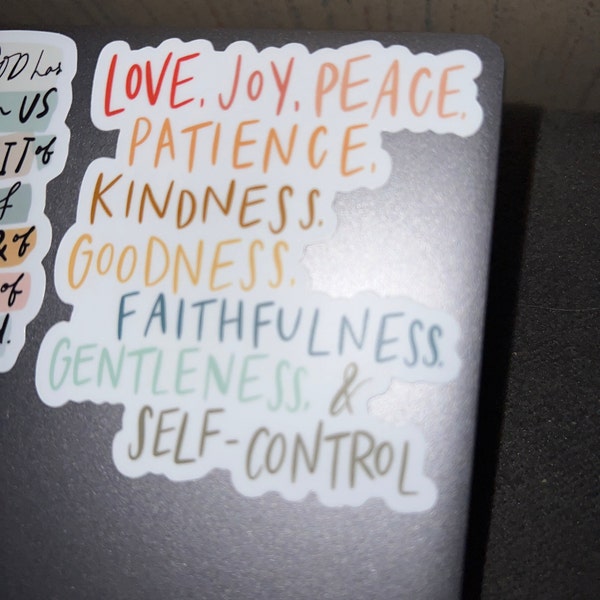 GOD has
US
IT of
& of
of
LOVE, JOY, PEACE,
PATIENCE,
KINDNESS,
GOODNESS,
FAITHFULNESS,
GENTLENESS, &
SELF-CONTROL